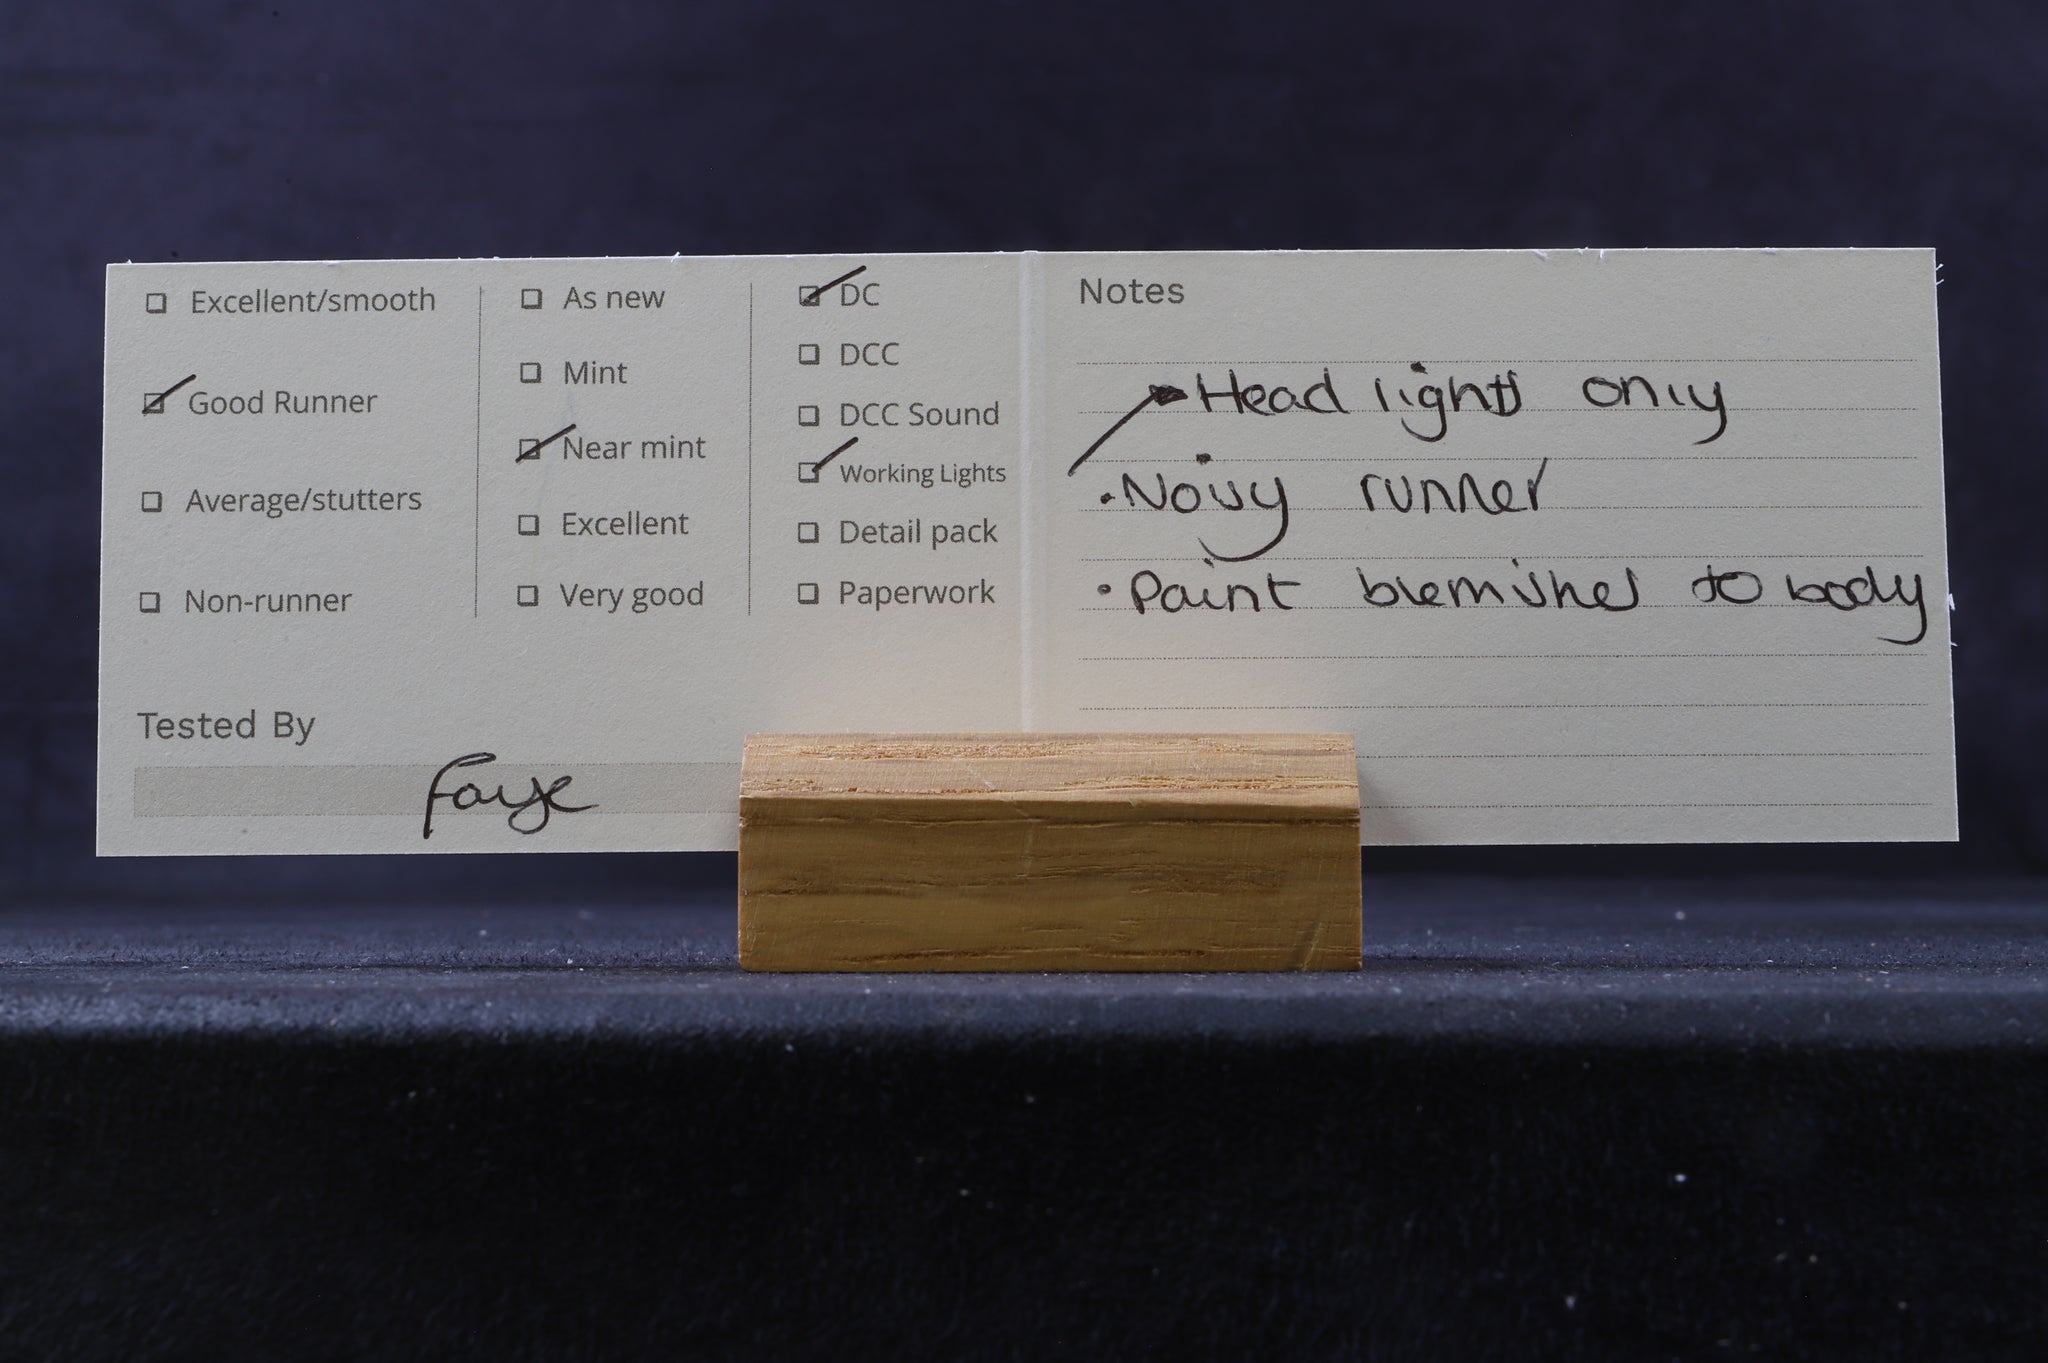 Excellent/smooth
Good Runner
Average/stutters
Non-runner
As new
Mint
Near mint
Excellent
Very good
DC
DCC
DCC Sound
Working Lights
Detail pack
Paperwork
Tested By
Faye
Notes
Head lights only
• Noisy runner
• Paint blemishes to body